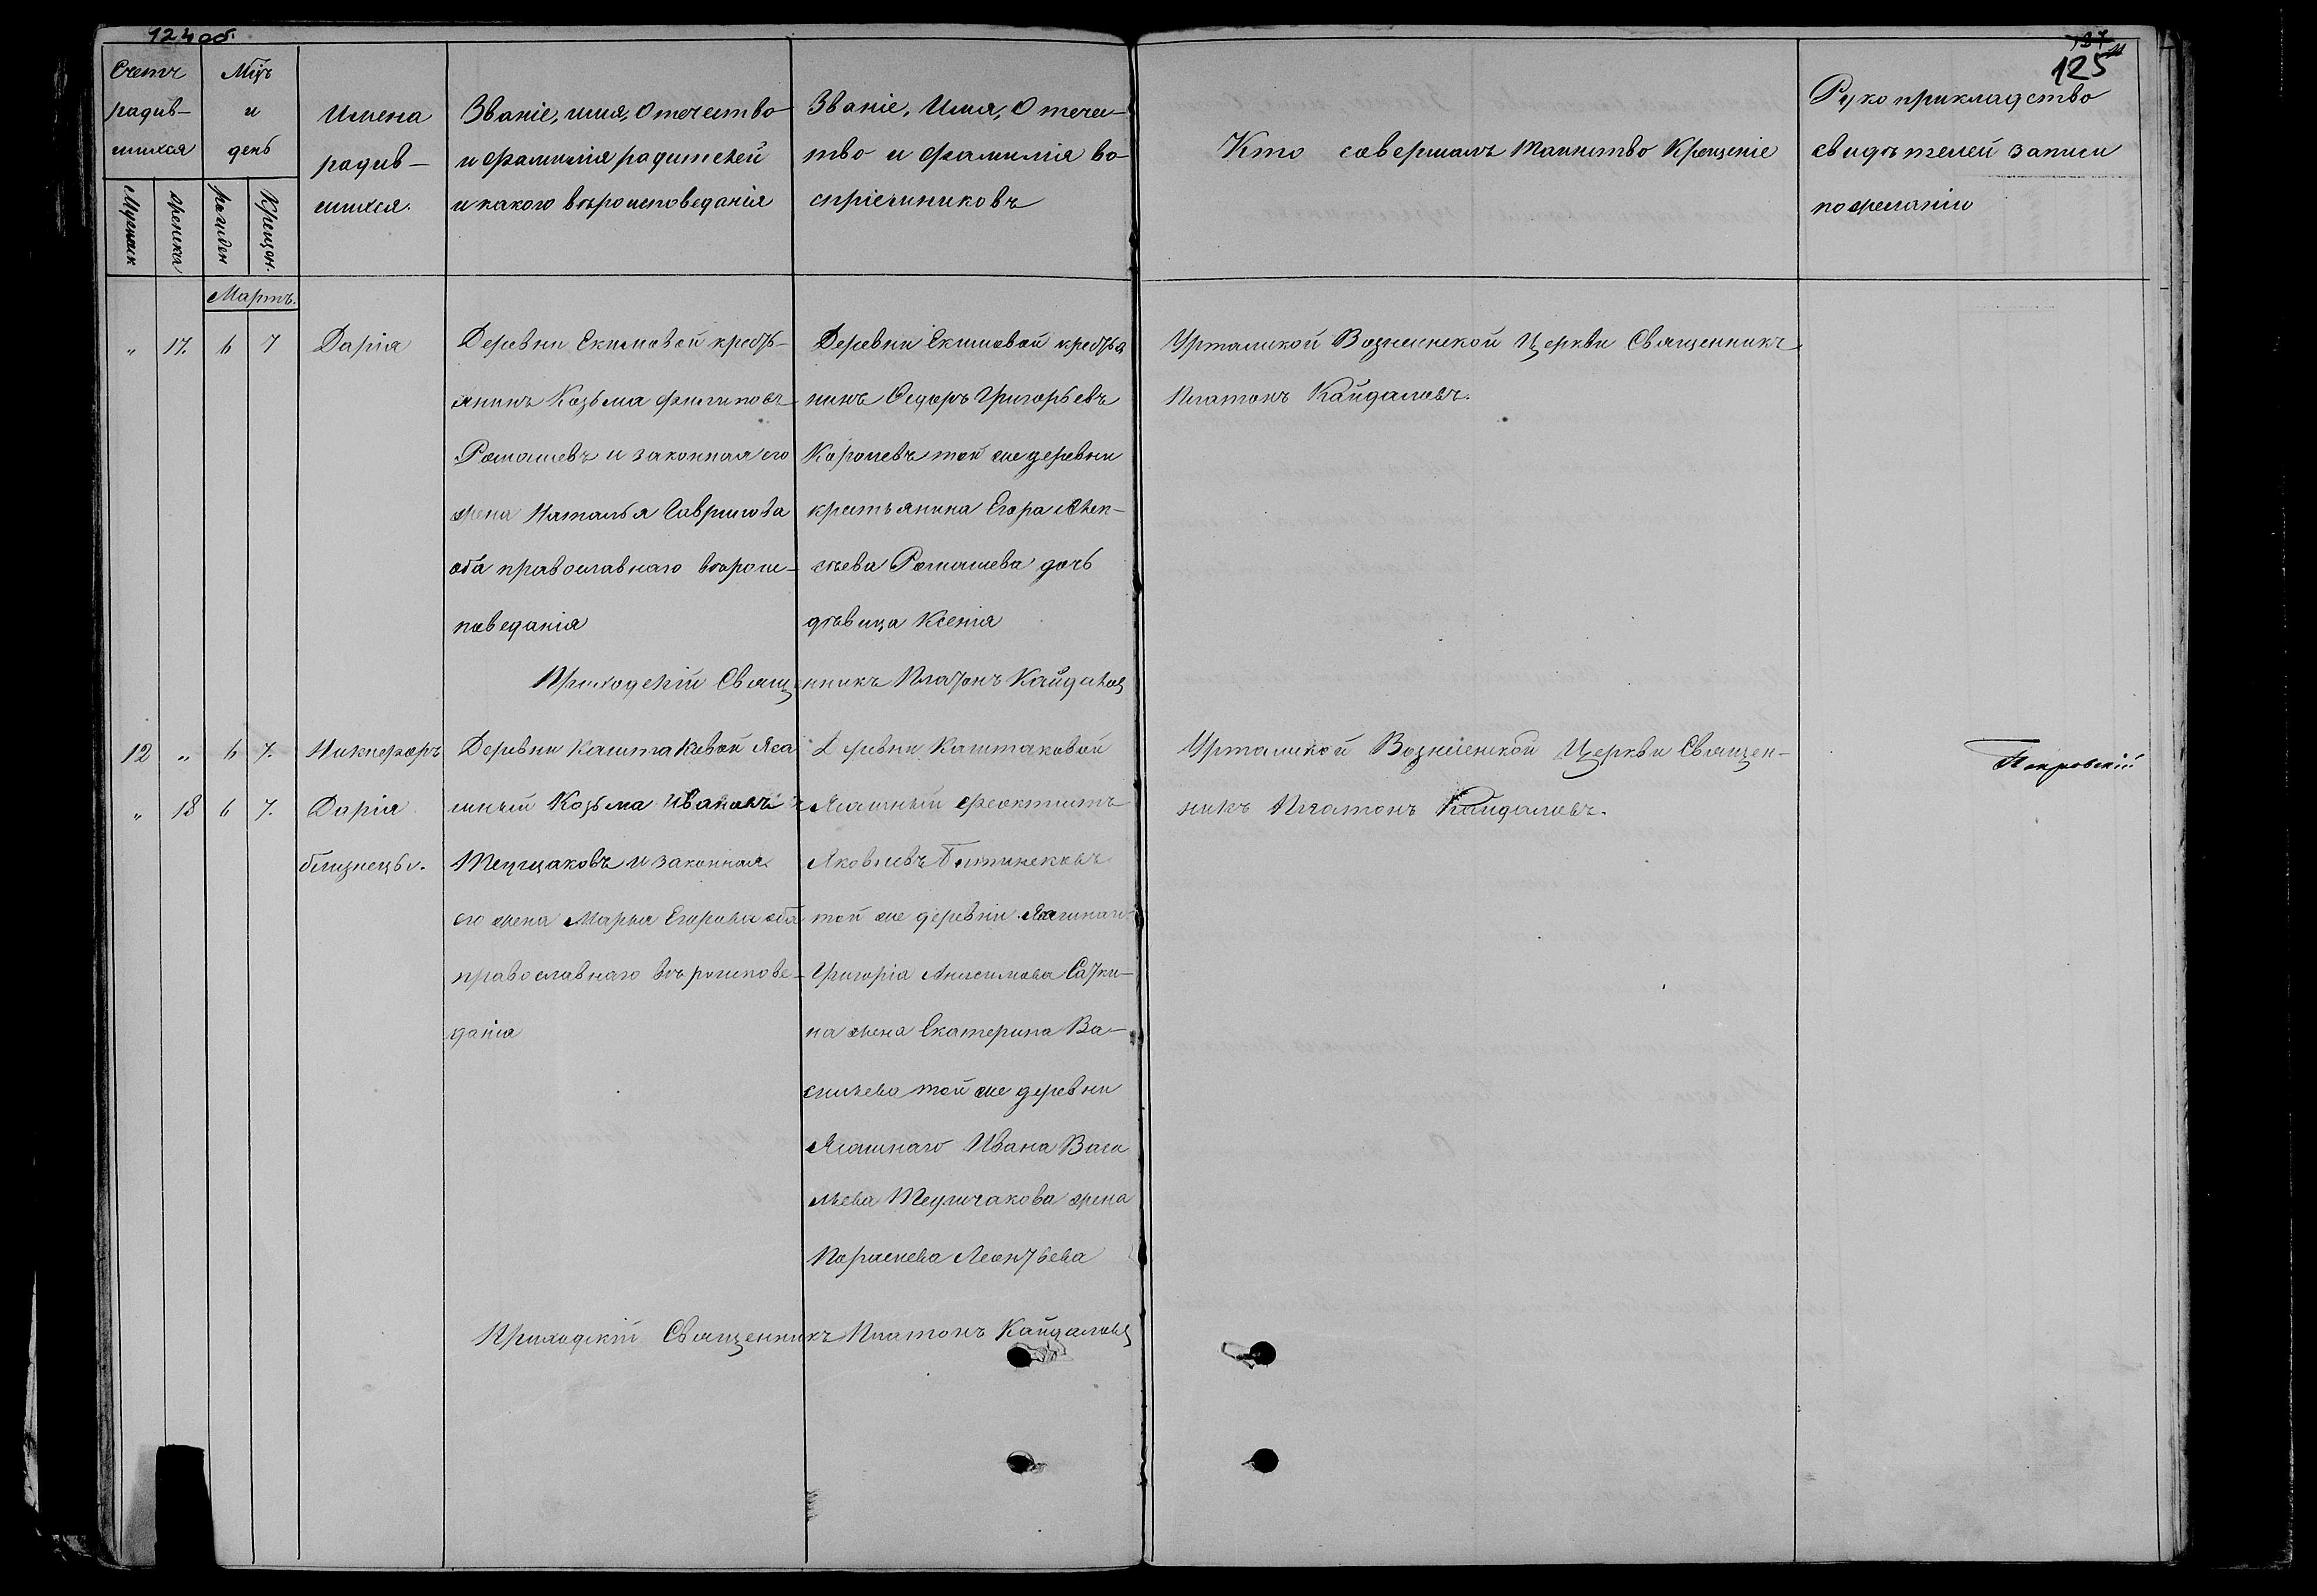 124 об.
125
Счетъ
родив-
шихся
Мцъ
и
день
Имена
родив-
шихся.
Званіе, имя, Отечество
и фамилія родителей
и какого вѣроисповеданія
Званіе, Имя, Отечес-
тво и фамилія во-
спріемниковъ
Кто совершалъ таинство Крещеніе
Рукоприкладство
свидѣтелей записи
по желанію
Мужеск
женска
рожден
Крещен.
Мартъ.
" 17. 6 7 Дарія
Деревни Екимовой кресть-
янинъ Козьма филиповъ
Ромашевъ и законная его
жена Наталья Гаврилова
оба православнаго вѣроис-
поведанія
Деревни Екимовой крестья
нинъ Ѳедоръ Григорьевъ
Королевъ той же деревни
крестьянина Егора Алек-
сѣева Ромашева дочь
дѣвица Ксенія
Урталиской Вознесенской Церкви Священникъ
Платонъ Кайдаловъ.
Приходскій Священникъ Платонъ Кайдаловъ
12 " 6 7. Никифоръ
" 18 6 7. Дарія
близнецы.
Деревни Каштаковой Яса
шный Козьма Ивановъ
и законная
его жена Марья Егорова оба
православнаго вѣроиспове-
данія
Деревни Каштаковой
Ясашный Феоктистъ
Яковлевъ
той же деревни Ясашнаго
Григорія Анисимова Сатки-
на жена Екатерина Ва-
сильева той же деревни
Ясашнаго Ивана Васи
льева жена
Парасковья Леонтьева
Урталиской Вознесенской Церкви Священ-
никъ Платонъ Кайдаловъ.
Покровскій
Приходскій Священникъ Платонъ Кайдаловъ